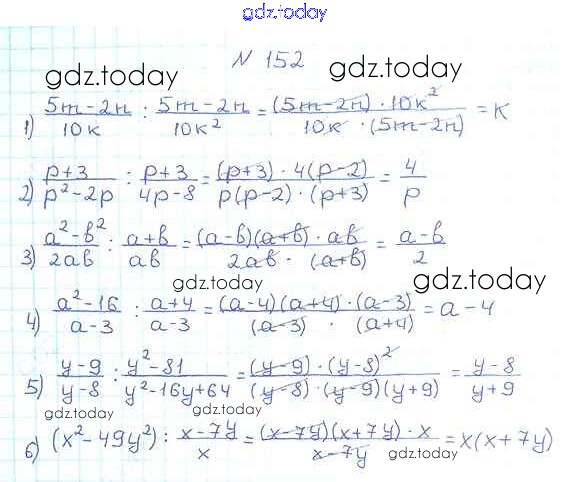 gdz.today
N 152
gdz.today gdz.today
1) (5m-2n)/(10k) : (5m-2n)/(10k²) = ((5m-2n) · 10k²)/(10k · (5m-2n)) = k
2) (p+3)/(p²-2p) : (p+3)/(4p-8) = ((p+3) · 4(p-2))/(p(p-2) · (p+3)) = 4/p
3) (a²-b²)/(2ab) : (a+b)/(ab) = ((a-b)(a+b) · ab)/(2ab · (a+b)) = (a-b)/2
gdz.today gdz.today
4) (a²-16)/(a-3) : (a+4)/(a-3) = ((a-4)(a+4) · (a-3))/((a-3) · (a+4)) = a-4
5) (y-9)/(y-8) : (y²-81)/(y²-16y+64) = ((y-9) · (y-8)²)/((y-8) · (y-9)(y+9)) = (y-8)/(y+9)
gdz.today
6) (x²-49y²) : (x-7y)/x = ((x-7y)(x+7y) · x)/(x-7y) = x(x+7y)
gdz.today gdz.today